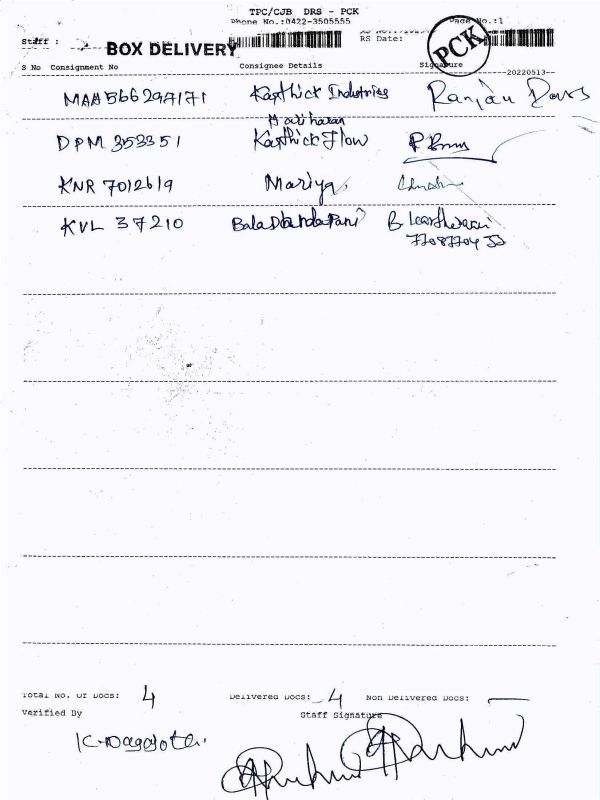 TPC/CJB DRS - PCK
Phone No.:0422-3505555
Page No.:1
Staff :
BOX DELIVERY
RS Date:
PCK
S No Consignment No Consignee Details Signature
20220513
MAA566297171 Karthick Industries
Hariharan
DPM 353351 Karthick Flow
KNR 7012619 Mariya
KVL 37210
Total No. Of Docs: 4 Delivered Docs: 4 Non Delivered Docs: —
Verified By Staff Signature